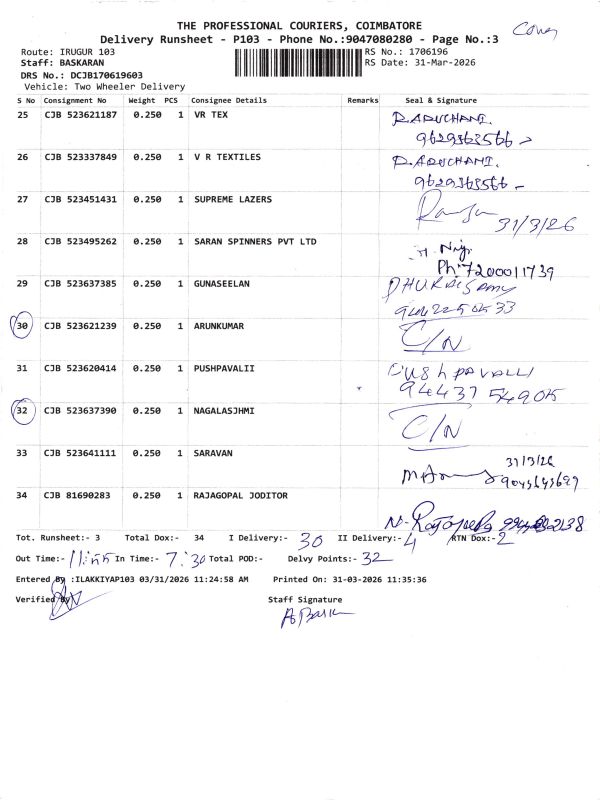 THE PROFESSIONAL COURIERS, COIMBATORE
Delivery Runsheet - P103 - Phone No.:9047080280 - Page No.:3
Route: IRUGUR 103 RS No.: 1706196
Staff: BASKARAN RS Date: 31-Mar-2026
DRS No.: DCJB170619603
Vehicle: Two Wheeler Delivery
S No Consignment No Weight PCS Consignee Details Remarks Seal & Signature
25 CJB 523621187 0.250 1 VR TEX
26 CJB 523337849 0.250 1 V R TEXTILES
27 CJB 523451431 0.250 1 SUPREME LAZERS 31/3/26
28 CJB 523495262 0.250 1 SARAN SPINNERS PVT LTD
Ph: 7200011739
29 CJB 523637385 0.250 1 GUNASEELAN
30 CJB 523621239 0.250 1 ARUNKUMAR C/N
31 CJB 523620414 0.250 1 PUSHPAVALII
94437 549015
32 CJB 523637390 0.250 1 NAGALASJHMI C/N
33 CJB 523641111 0.250 1 SARAVAN 31/3/26
34 CJB 81690283 0.250 1 RAJAGOPAL JODITOR
Tot. Runsheet:- 3 Total Dox:- 34 I Delivery:- 30 II Delivery:- 4 RTN Dox:- 2
Out Time:- 11:55 In Time:- 7:30 Total POD:- Delvy Points:- 32
Entered By :ILAKKIYAP103 03/31/2026 11:24:58 AM Printed On: 31-03-2026 11:35:36
Verified By Staff Signature